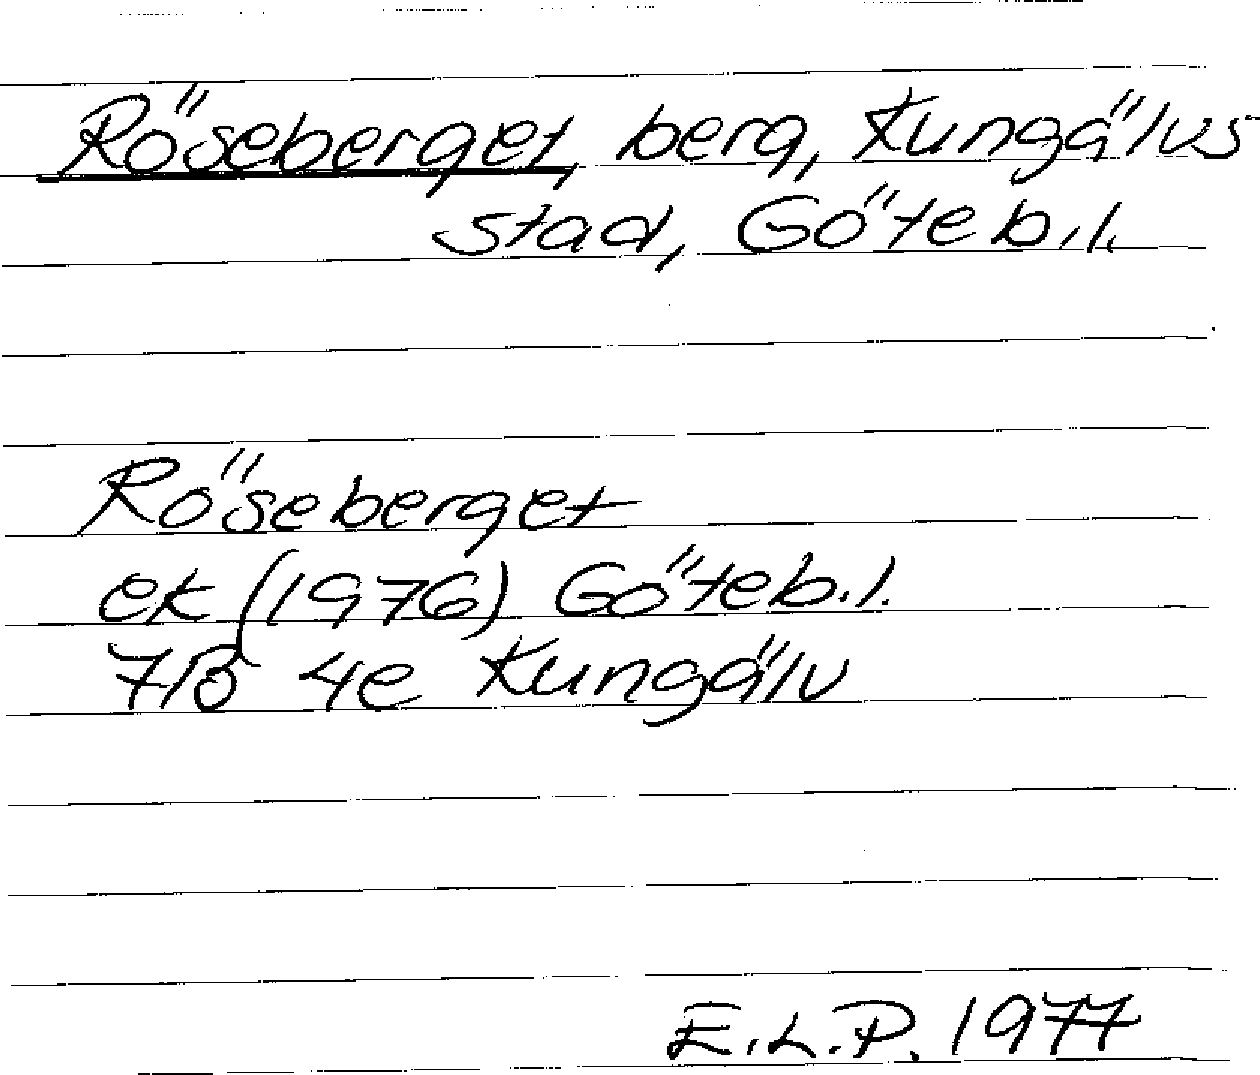 Röseberget, berg, Kungälvs
stad, Göteb.l.
Röseberget
ek (1976) Göteb.l.
7B 4e Kungälv
E.L.P. 1977